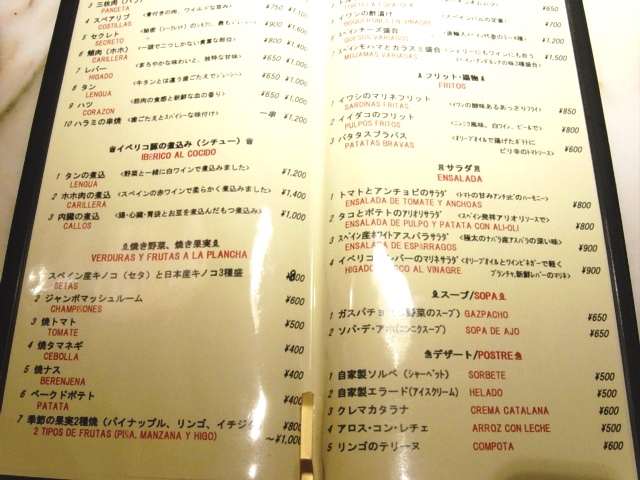 3 三枚肉(バラ)
PANCETA
4 スペアリブ
COSTILLAS
5 セクレト
SECRETO
6 頬肉(ホホ)
CARILLERA
7 レバー <まろやかな味わいと、独特な甘味> ¥650 ¥1,000
HIGADO
8 タン <牛タンとは違う歯ごたえでジューシー> ¥650 ¥1,000
LENGUA
9 ハツ <筋肉の食感と新鮮な血の香り> ¥650 ¥1,000
CORAZON
10 ハラミの串焼 <歯ごたえとスパイシーな味付け> 一串 ¥1,200
イベリコ豚の煮込み(シチュー)
IBERICO AL COCIDO
1 タンの煮込 <野菜と一緒に白ワインで煮込みました> ¥1,200
LENGUA
2 ホホ肉の煮込 <スペインの赤ワインで柔らかく煮込みました> ¥1,400
CARILLERA
3 内臓の煮込 <腸・心臓・胃袋とお豆を煮込んだもつ煮込み> ¥1,000
CALLOS
焼き野菜、焼き果実
VERDURAS Y FRUTAS A LA PLANCHA
スペイン産キノコ(セタ)と日本産キノコ3種盛
SETAS
2 ジャンボマッシュルーム ¥600
CHAMPIÑONES
3 焼トマト ¥500
TOMATE
4 焼タマネギ ¥400
CEBOLLA
5 焼ナス ¥400
BERENJENA
6 ベークドポテト ¥400
PATATA
7 季節の果実2種焼(パイナップル、リンゴ、イチジク ¥800
2 TIPOS DE FRUTAS (PIÑA, MANZANA Y HIGO) ～¥1,000
5 イワシの酢漬け ¥700
BOQUERONES EN VINAGRE
6 スペインチーズ盛合 ¥1,200
QUESOS VARIADOS
7 スペインモハマとカラスミ盛合 ¥1,500
MOJAMAS VARIADAS
フリット・揚物
FRITOS
1 イワシのマリネフリット <イワシの酸味あるあっさりフライ> ¥850
SARDINAS FRITAS
2 イイダコのフリット <ニンニク風味。白ワイン、ビールで> ¥800
PULPOS FRITOS
3 パタタスブラバス <オリーブオイルで揚げたポテトに ¥600
PATATAS BRAVAS ピリ辛のトマトソース>
サラダ
ENSALADA
1 トマトとアンチョビのサラダ <トマトの甘みアンチョビのハーモニー> ¥800
ENSALADA DE TOMATE Y ANCHOAS
2 タコとポテトのアリオリサラダ <スペイン発祥アリオリソースで> ¥800
ENSALADA DE PULPO Y PATATA CON ALI-OLI
3 スペイン産ホワイトアスパラサラダ <極太のナバラ産アスパラの深い味> ¥900
ENSALADA DE ESPARRAGOS
4 イベリコ レバーのマリネサラダ <オリーブオイルとワインビネガーで軽く ¥900
HIGADO ICO AL VINAGRE プランチャ、新鮮レバーのマリネ>
スープ/SOPA
1 ガスパチョ 野菜のスープ) GAZPACHO ¥650
2 ソパ・デ・アホ(ニンニクスープ) SOPA DE AJO ¥650
デザート/POSTRE
1 自家製ソルベ(シャーベット) SORBETE ¥500
2 自家製エラード(アイスクリーム) HELADO ¥500
3 クレマカタラナ CREMA CATALANA ¥600
4 アロス・コン・レチェ ARROZ CON LECHE ¥500
5 リンゴのテリーヌ COMPOTA ¥600